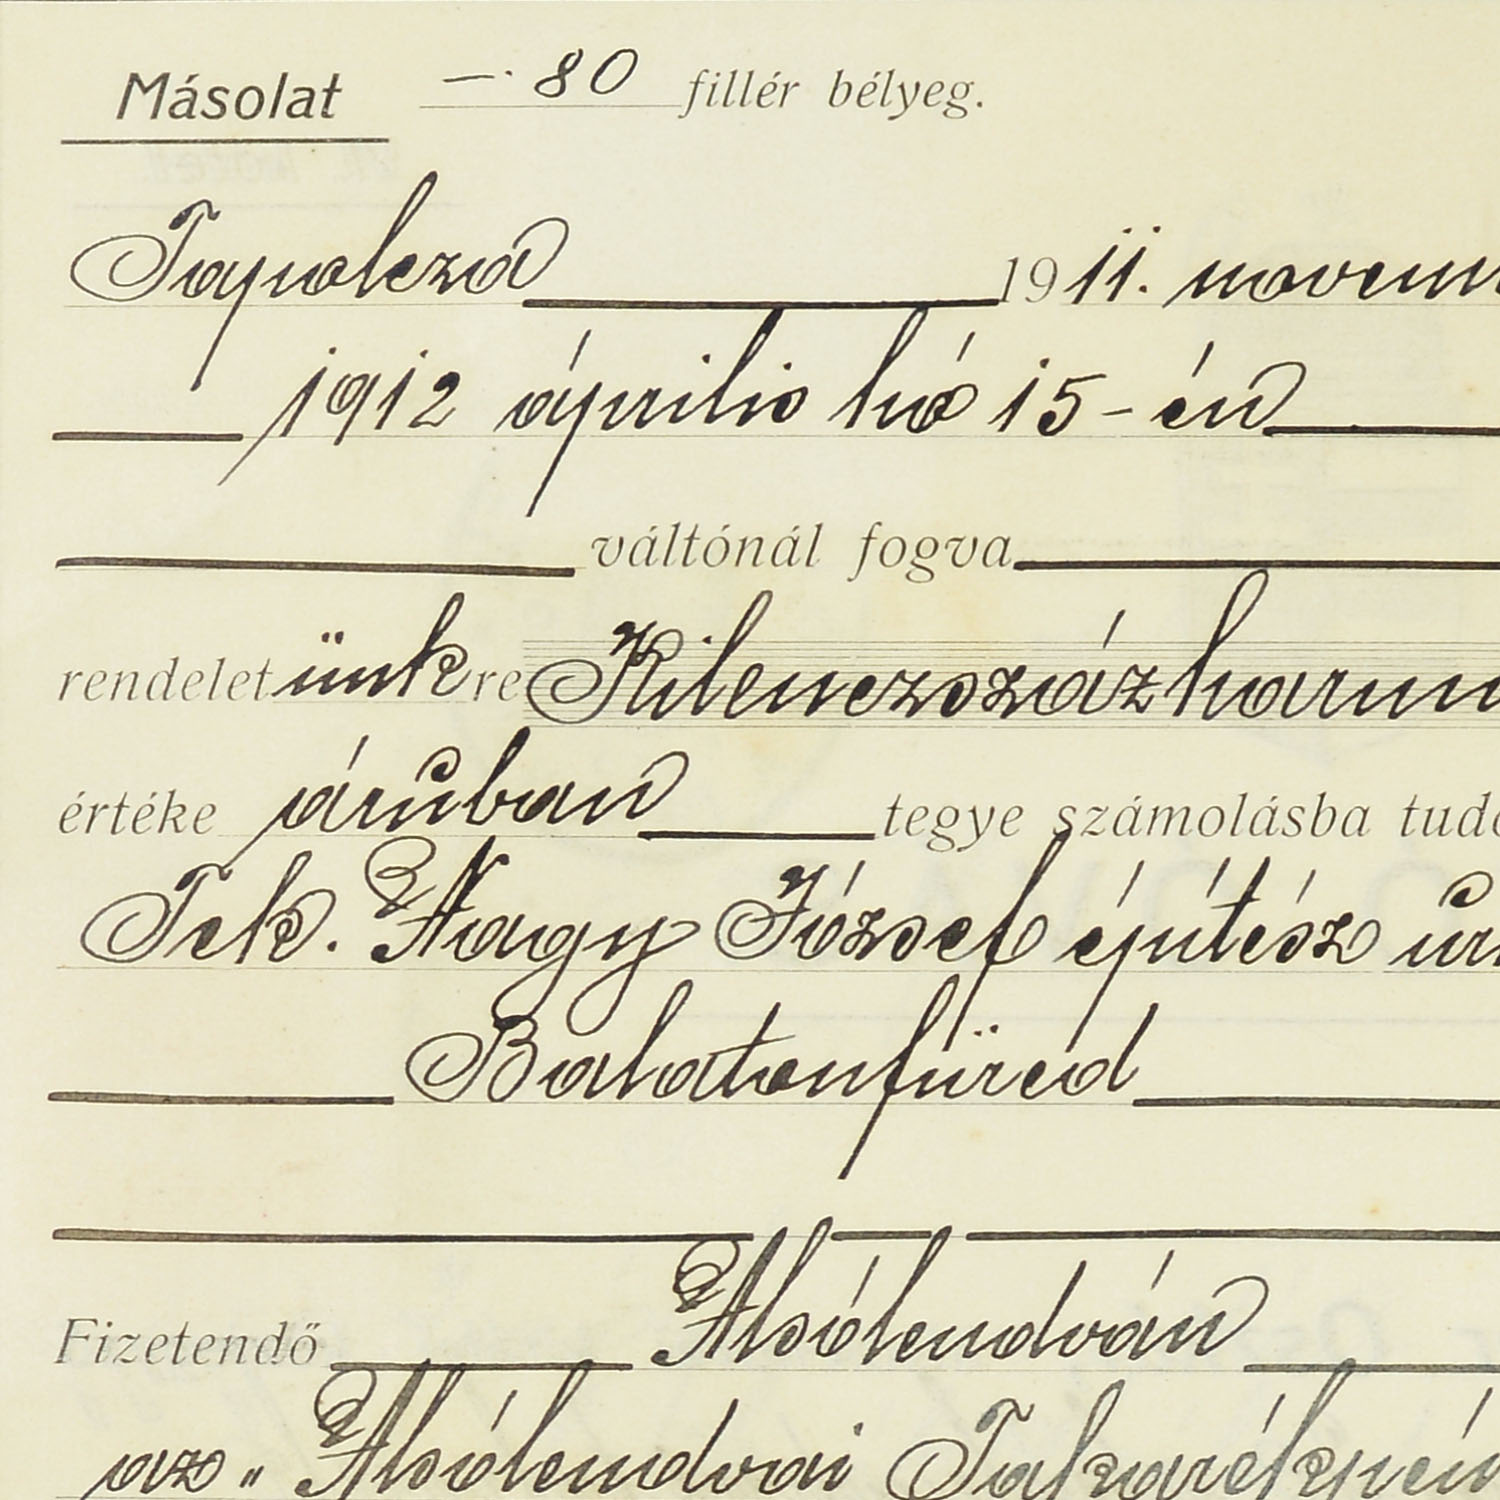 Másolat —·80 fillér bélyeg.
Tapolcza 1911. novem
1912 április hó 15-én
váltónál fogva
rendeletünkre Kilenczszázharm
értéke áruban tegye számolásba tud
Tek. Nagy József építész úr
Balatonfüred
Fizetendő Alsólendván
az „Alsólendvai Takarékpén